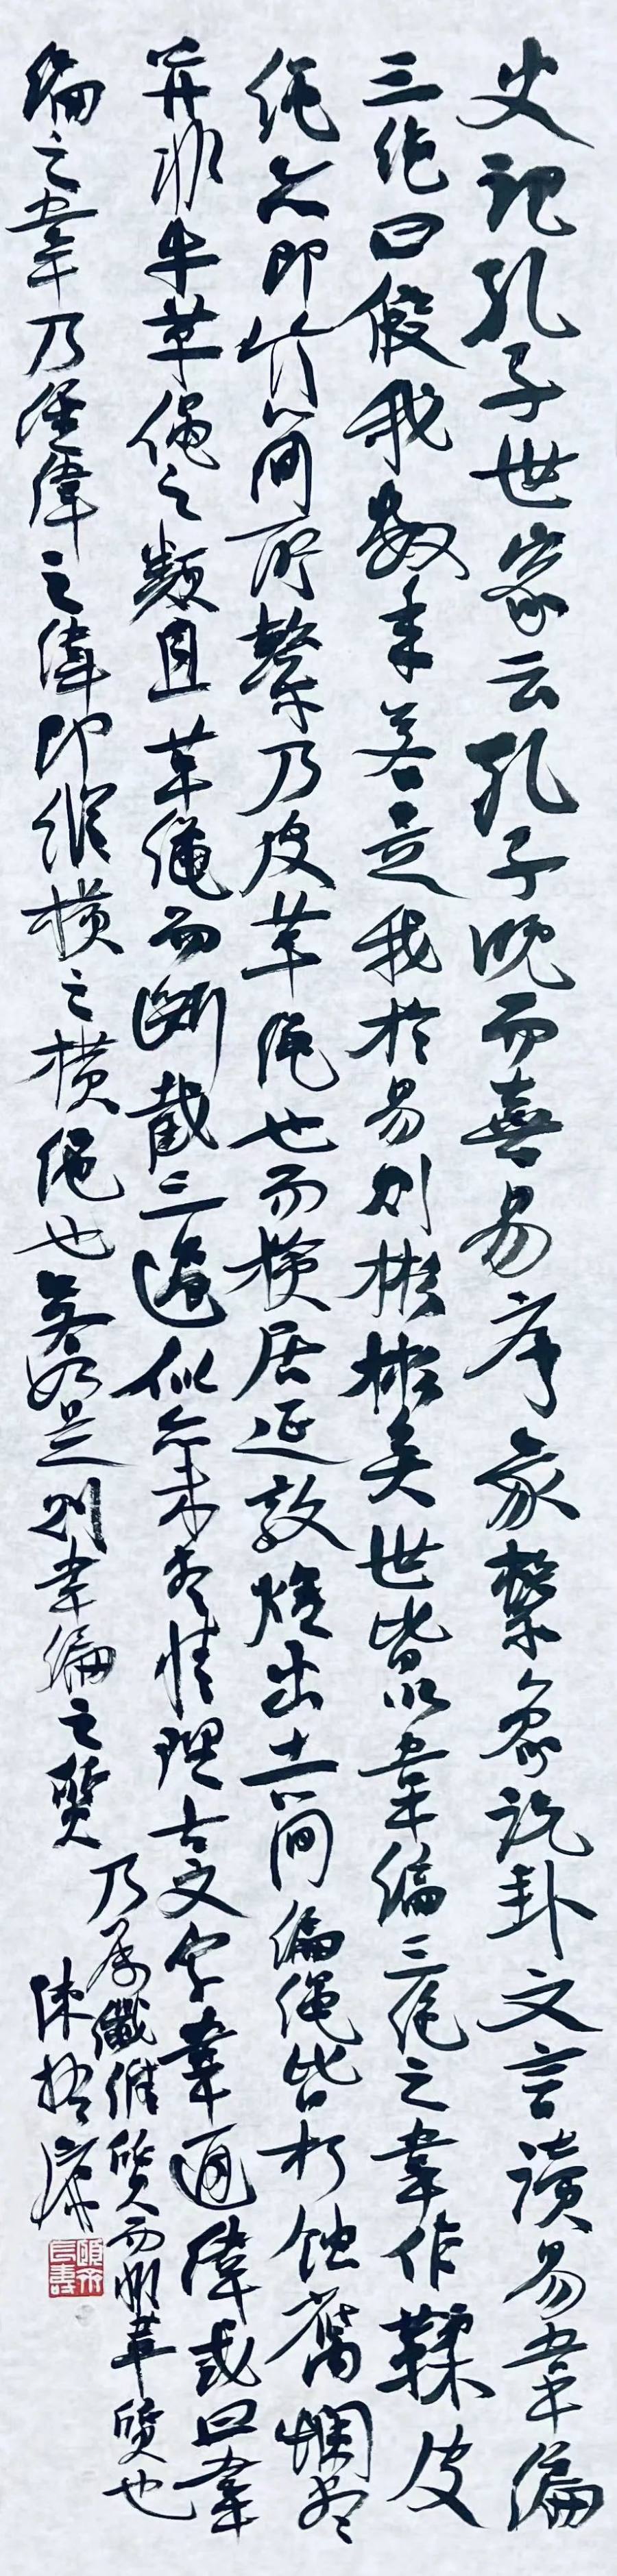 史記孔子世家云孔子晚而喜易序彖繫象說卦文言讀易韋編
三绝曰假我數年若是我於易則彬彬矣世皆以韋編三绝之韋作鞣皮
绳亦即竹简所繫乃皮革绳也而検居延敦煌出土简編绳皆朽蝕舊
并非牛革繩之類且革繩而斷截三過似亦未盡情理古文字韋通緯或曰韋
編之韋乃经緯之緯即縱橫之橫绳也若是則韋編之質
乃為纖維質而非革質也
陳